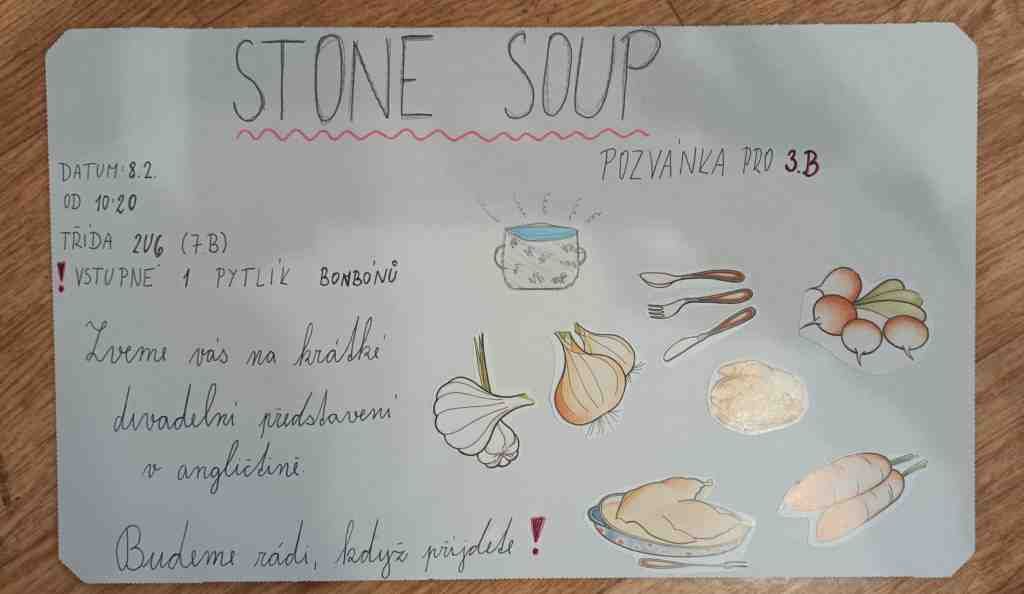 STONE SOUP
POZVÁNKA PRO 3.B
DATUM: 8.2.
OD 10:20
TŘÍDA 2U6 (7B)
! VSTUPNÉ 1 PYTLÍK BONBÓNŮ
Zveme vás na krátké
divadelní představení
v angličtině.
Budeme rádi, když přijdete!